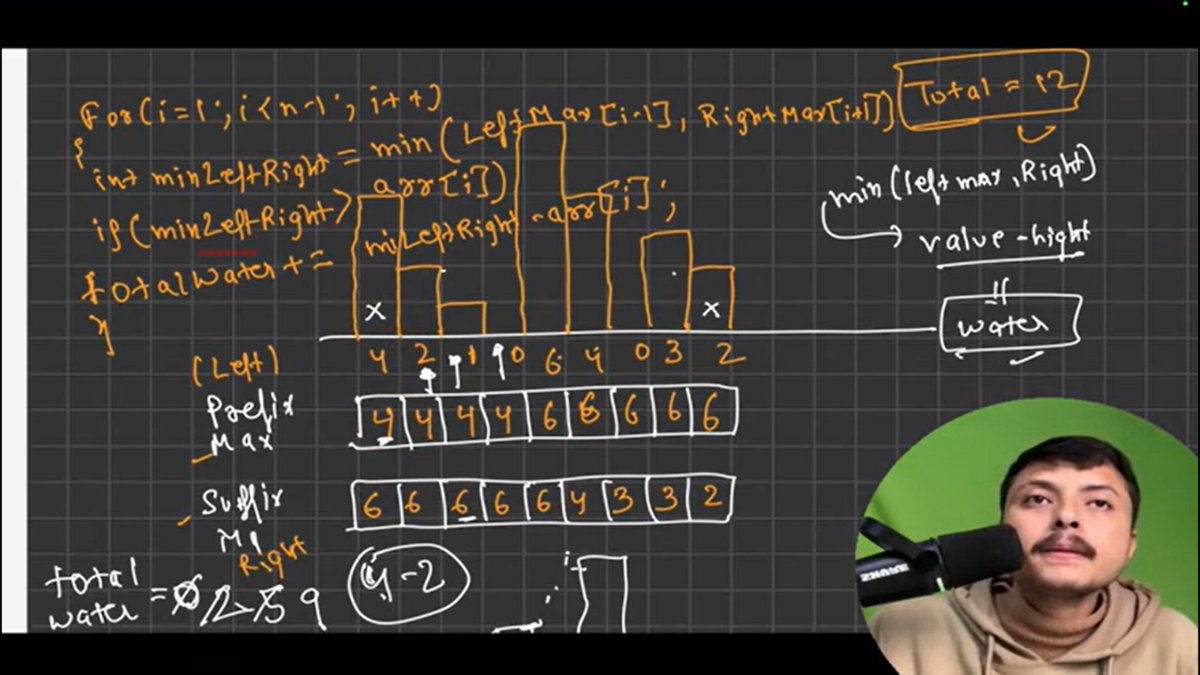 For(i=1; i<n-1; i++)
{
int minLeftRight = min(LeftMax[i-1], RightMax[i+1])
if(minLeftRight > arr[i])
totalWater += minLeftRight - arr[i];
}
Total = 12
min(left max, Right)
value - hight
water
x
x
4 2 1 0 6 4 0 3 2
(Left)
Prefix
Max
4 4 4 4 6 6 6 6 6
Suffix
6 6 6 6 6 4 3 3 2
Right
total
water = 0 2 5 9
4-2
i